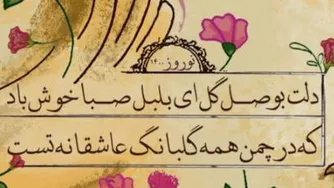 نوروز ۱۴۰۰
دلت بوصل گل ای بلبل صبا خوش باد
که در چمن همه گلبانگ عاشقانه تست